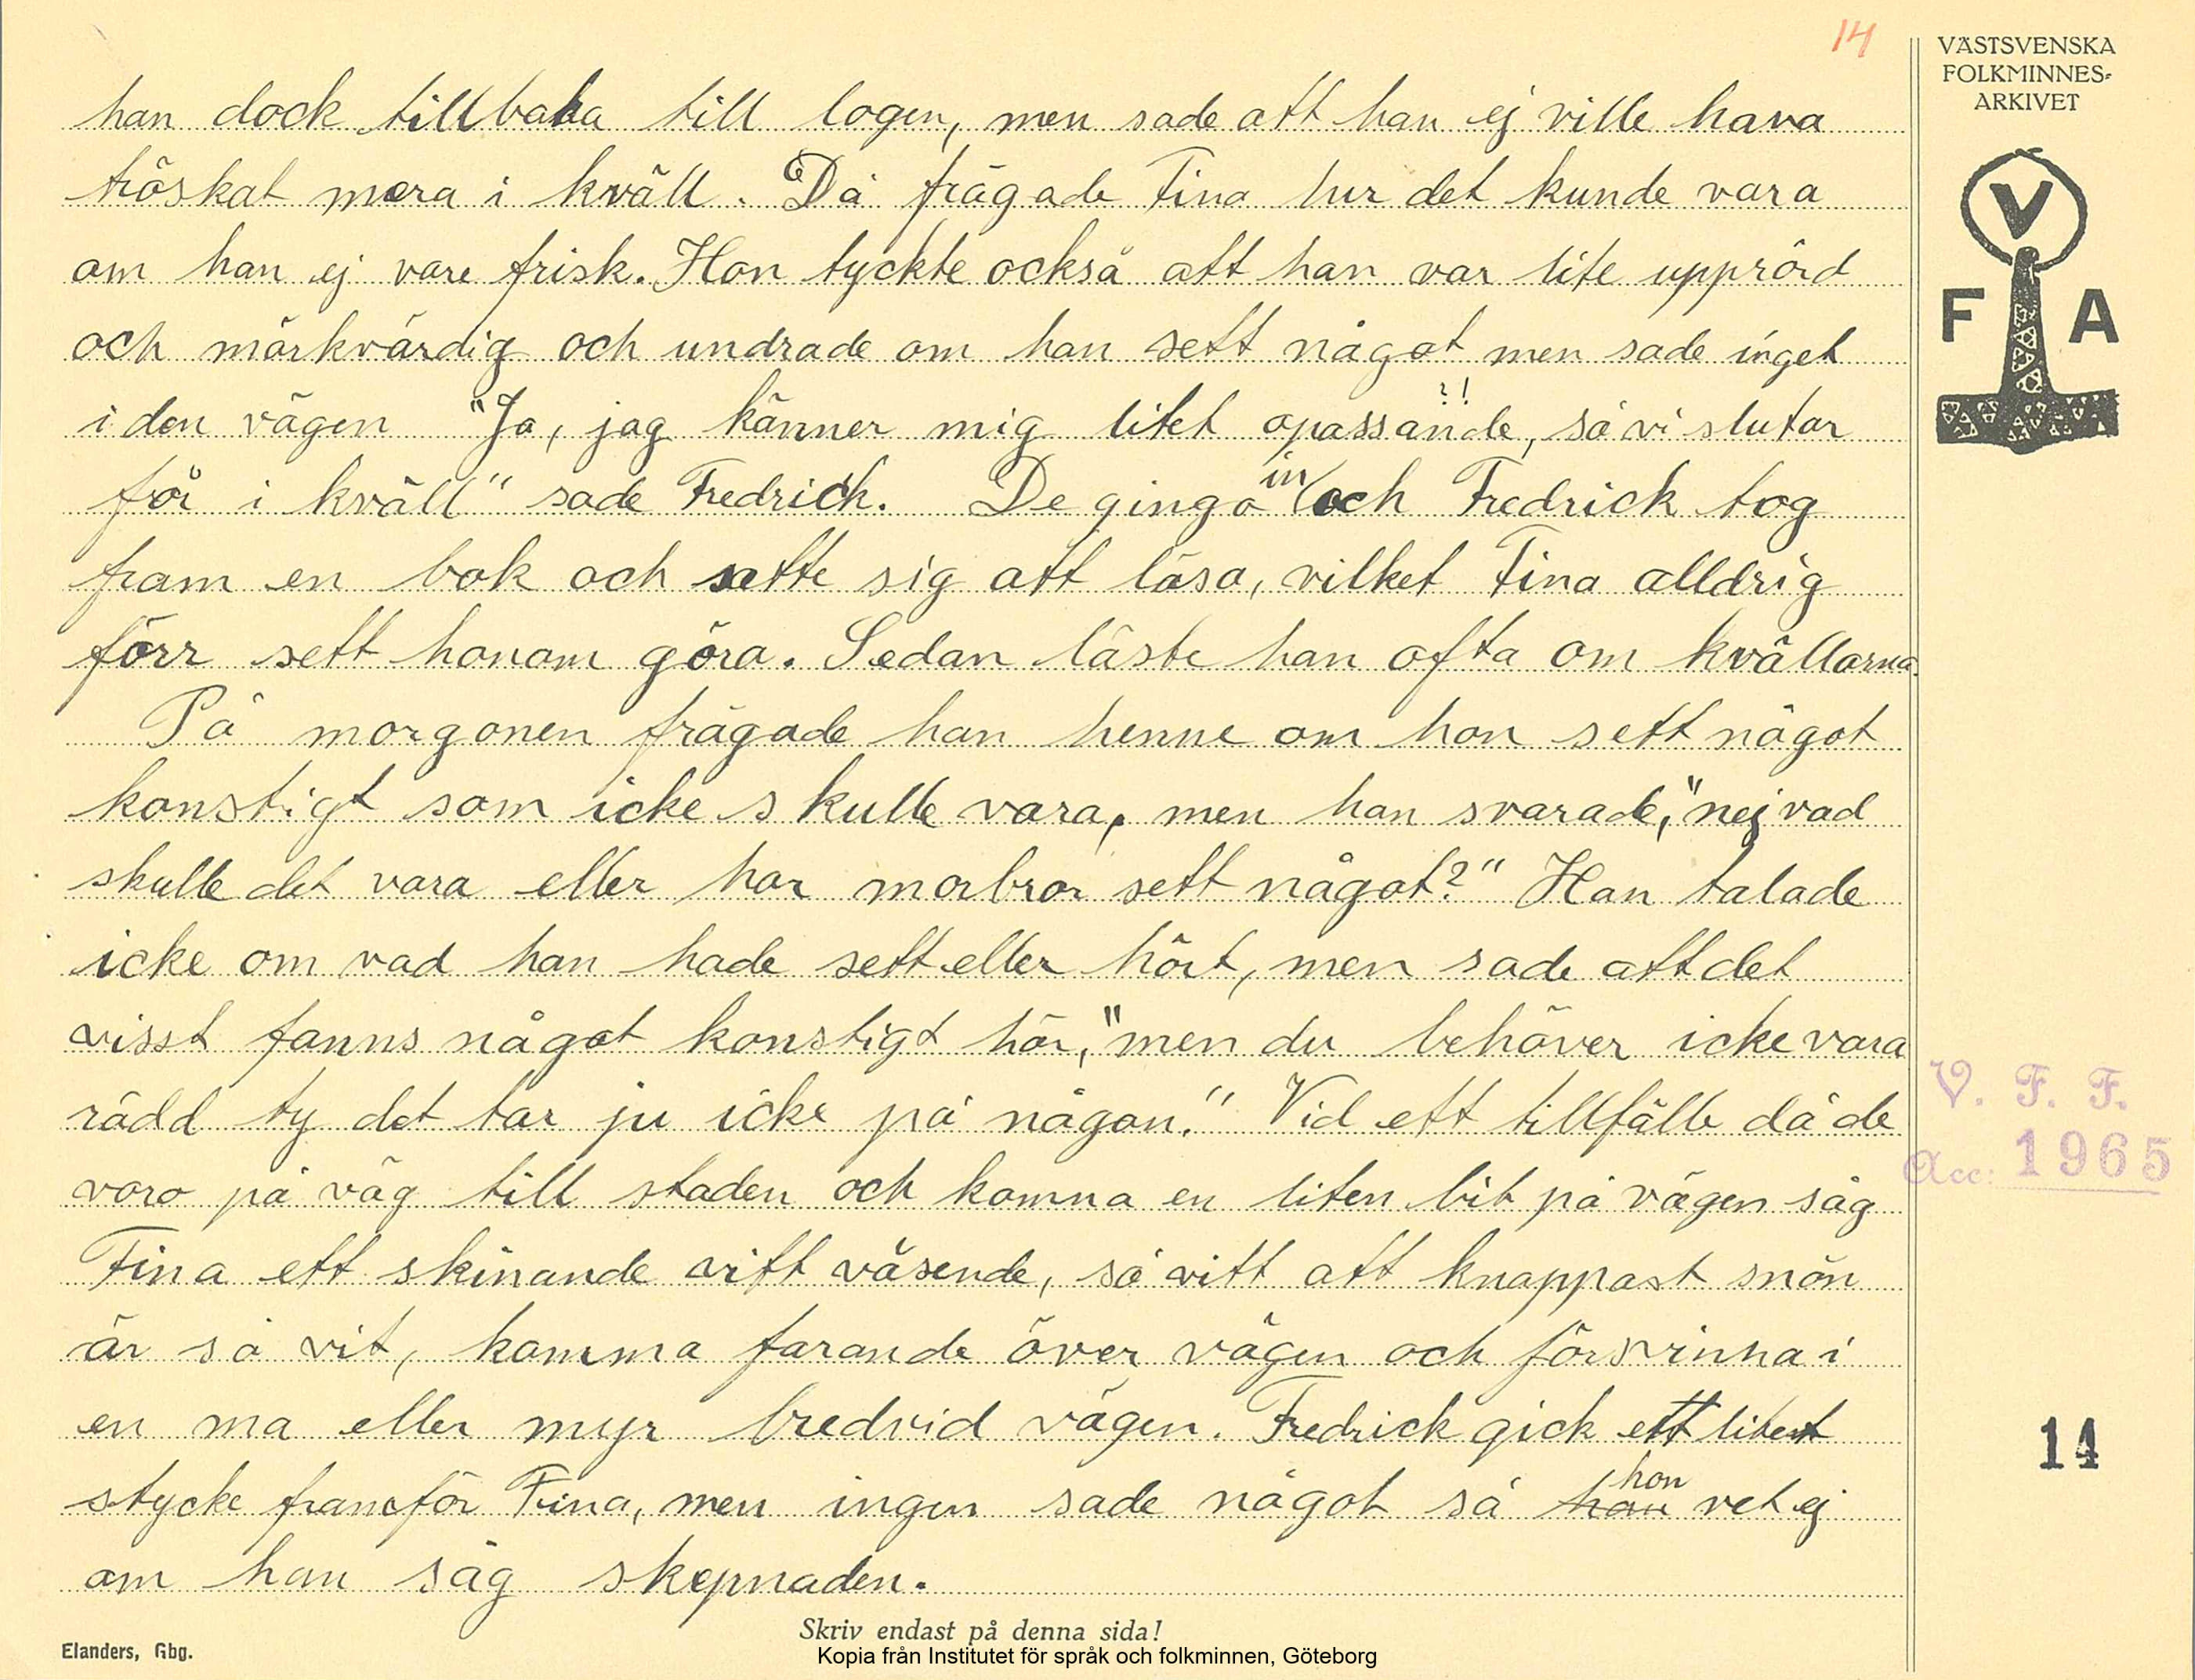 14
VÄSTSVENSKA
FOLKMINNES-
ARKIVET
V
F A
han dock tillbaka till logen, men sade att han ej ville hava
tröskat mera i kväll. Då frågade Fina hur det kunde vara
om han ej vore frisk. Hon tyckte också att han var lite upprörd
och märkvärdig och undrade om han sett något men sade inget
i den vägen "Ja, jag känner mig litet opassande ?!, så vi slutar
för i kväll" sade Fredrick. De gingo in och Fredrick tog
fram en bok och sette sig att läsa, vilket Fina alldrig
förr sett honom göra. Sedan läste han ofta om kvällarna.
På morgonen frågade han henne om hon sett något
konstigt som icke skulle vara, men han svarade, "nej vad
skulle det vara eller har morbror sett något?" Han talade
icke om vad han hade sett eller hört, men sade att det
visst fanns något konstigt här, "men du behöver icke vara
rädd ty det tar ju icke på någon." Vid ett tillfälle då de
voro på väg till staden och komna en liten bit på vägen såg
Fina ett skinande vitt väsende, så vitt att knappast snön
är så vit, komma farande över vägen och försvinna i
en ma eller myr bredvid vägen. Fredrick gick ett litet
stycke framför Fina, men ingen sade något så han hon vet ej
om han såg skepnaden.
V. F. F.
Acc: 1965
14
Skriv endast på denna sida!
Elanders, Gbg.
Kopia från Institutet för språk och folkminnen, Göteborg